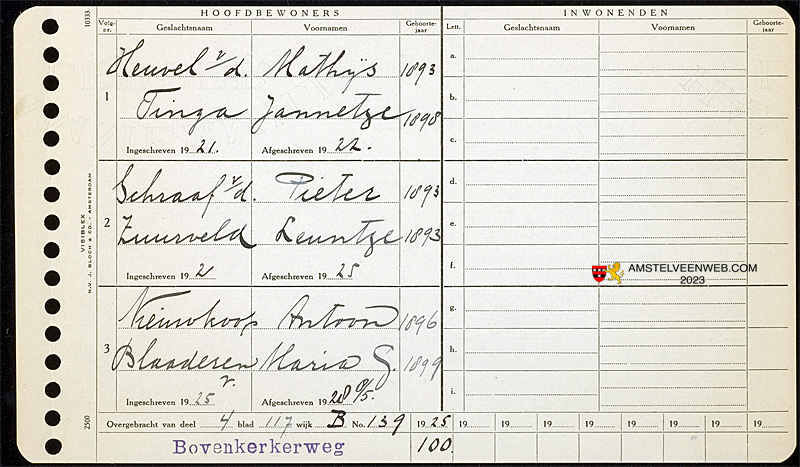 HOOFDBEWONERS
INWONENDEN
Volg-nr. Geslachtsnaam Voornamen Geboorte-jaar Lett. Geslachtsnaam Voornamen Geboorte-jaar
10333
1
Heuvel v/d. Mathijs 1893
Tinga Jannetze 1898
Ingeschreven 19 21. Afgeschreven 19 22.
a.
b.
c.
2
Schraaf v/d. Pieter 1893
Zuurveld Leuntze 1893
Ingeschreven 19 2 Afgeschreven 19 25
d.
e.
f.
VISIBLEX
N.V. J. BLOCH & CO. - AMSTERDAM
AMSTELVEENWEB.COM
2023
3
Nieuwkoop Antoon 1896
Blaaderen Maria G. 1899
v.
Ingeschreven 19 25 Afgeschreven 19 28
g.
h.
i.
2500
Overgebracht van deel 4 blad 117 wijk B No. 139 19 25 19 19 19 19 19 19 19
Bovenkerkerweg 100